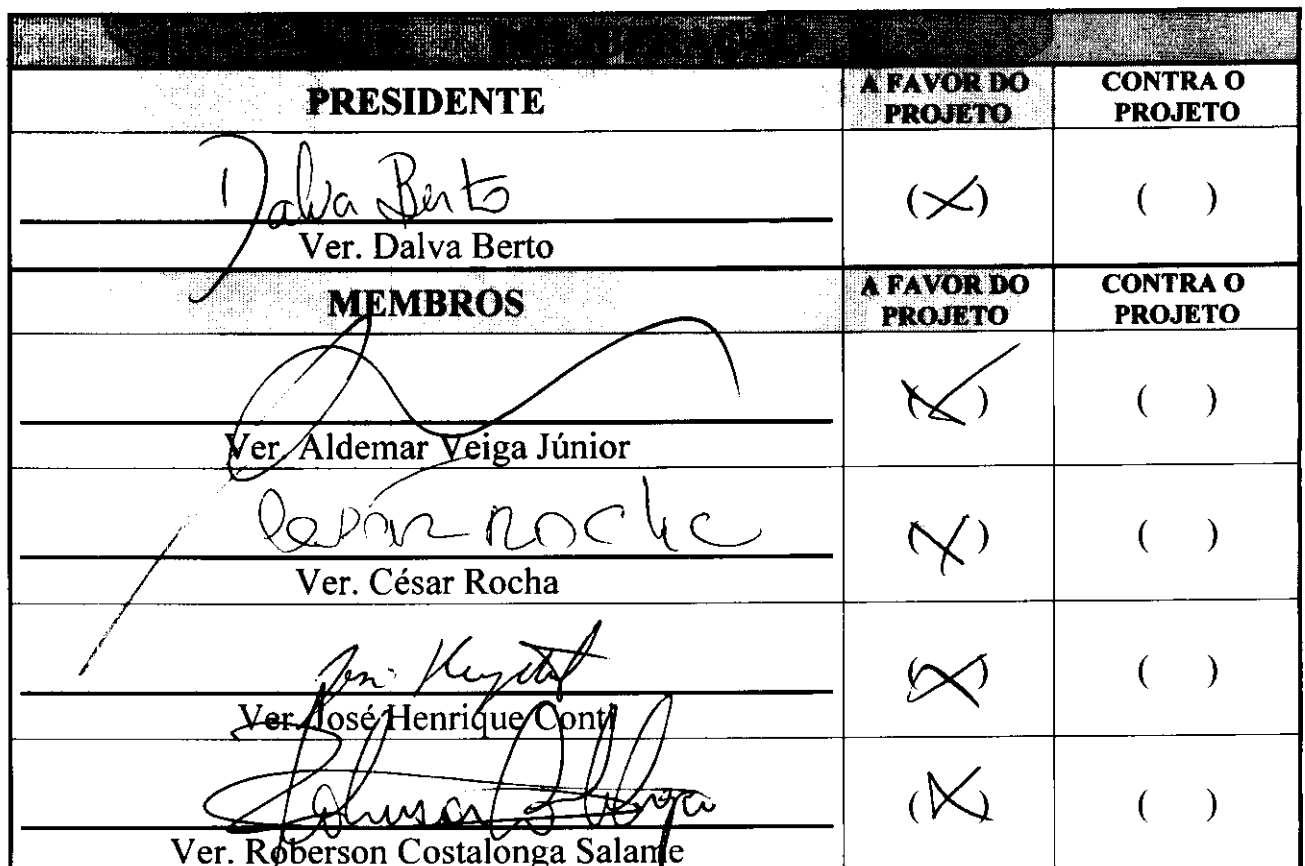 DELIBERAÇÃO
PRESIDENTE
A FAVOR DO PROJETO
CONTRA O PROJETO
Dalva Berto
(X)
( )
Ver. Dalva Berto
MEMBROS
A FAVOR DO PROJETO
CONTRA O PROJETO
(X)
( )
Ver. Aldemar Veiga Júnior
César Rocha
(X)
( )
Ver. César Rocha
(X)
( )
Ver. José Henrique Conti
(X)
( )
Ver. Roberson Costalonga Salame